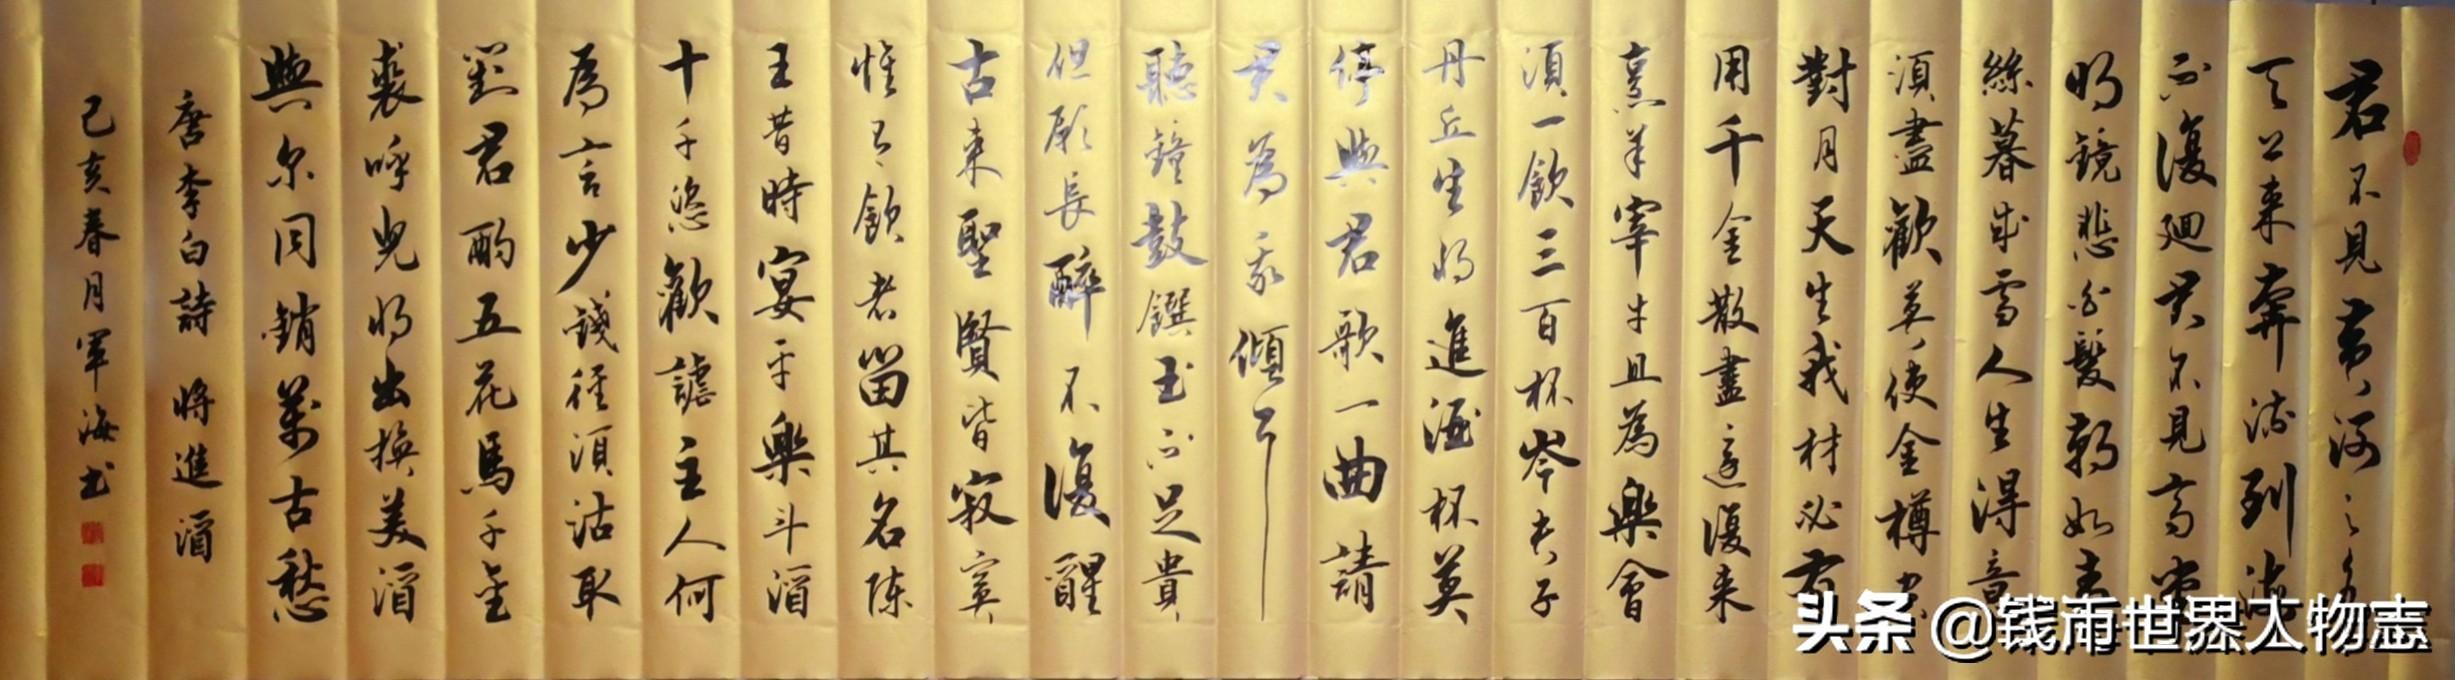 君不見黄河之水
天上来奔流到海
不復廻君不見高堂
明镜悲白髮朝如青
絲暮成雪人生得意
須盡歡莫使金樽空
對月天生我材必有
用千金散盡還復来
烹羊宰牛且為樂會
須一飲三百杯岑夫子
丹丘生将進酒杯莫
停與君歌一曲請
君為我傾耳
聽鐘鼓饌玉不足貴
但願長醉不復醒
古来聖賢皆寂寞
惟有飲者留其名陳
王昔時宴平樂斗酒
十千恣歡謔主人何
為言少錢徑須沽取
對君酌五花馬千金
裘呼児将出换美酒
與尔同銷萬古愁
唐李白詩 將進酒
己亥春月軍海书
头条 @钱雨世界人物志